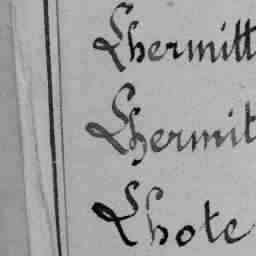 Lhermitt
Lhermit
Lhote